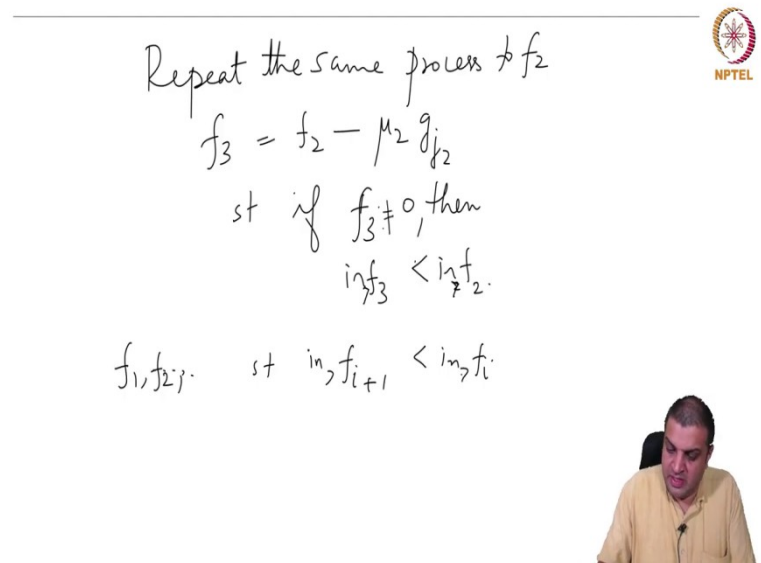 Repeat the same process to f₂
f₃ = f₂ − μ₂ g_{j₂}
st if f₃ ≠ 0, then
in_> f₃ < in_> f₂.
f₁, f₂, .. st in_> f_{i+1} < in_> f_i
NPTEL